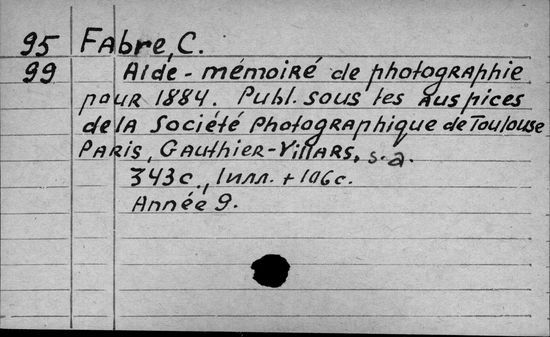 95 Fabre, C.
99 Aide-mémoiré de photographie
pour 1884. Publ. sous les auspices
de la Société photographique de Toulouse
Paris, Gauthier-Villars, s.a.
343c., Илл. + 106c.
Année 9.